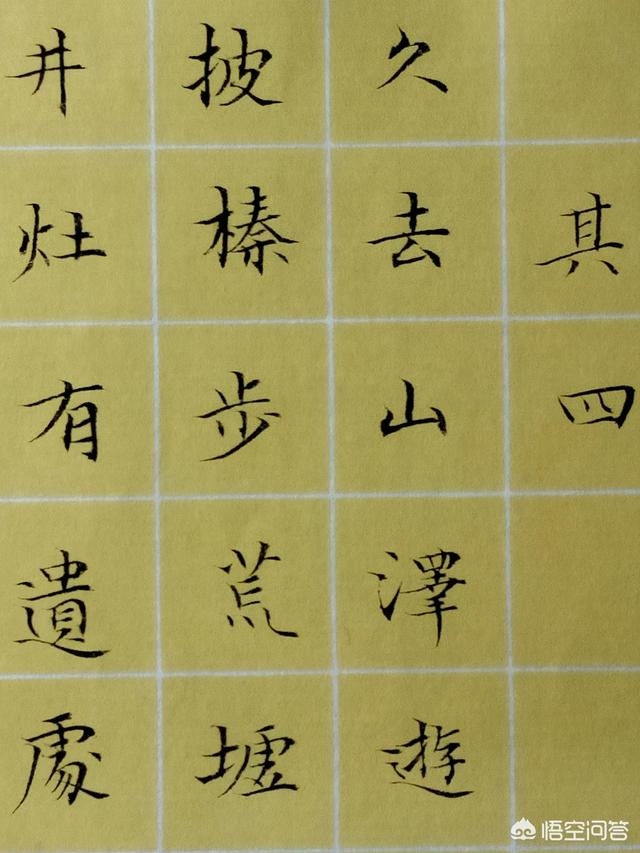 其四
久去山澤遊
披榛步荒墟
井灶有遺處
悟空问答